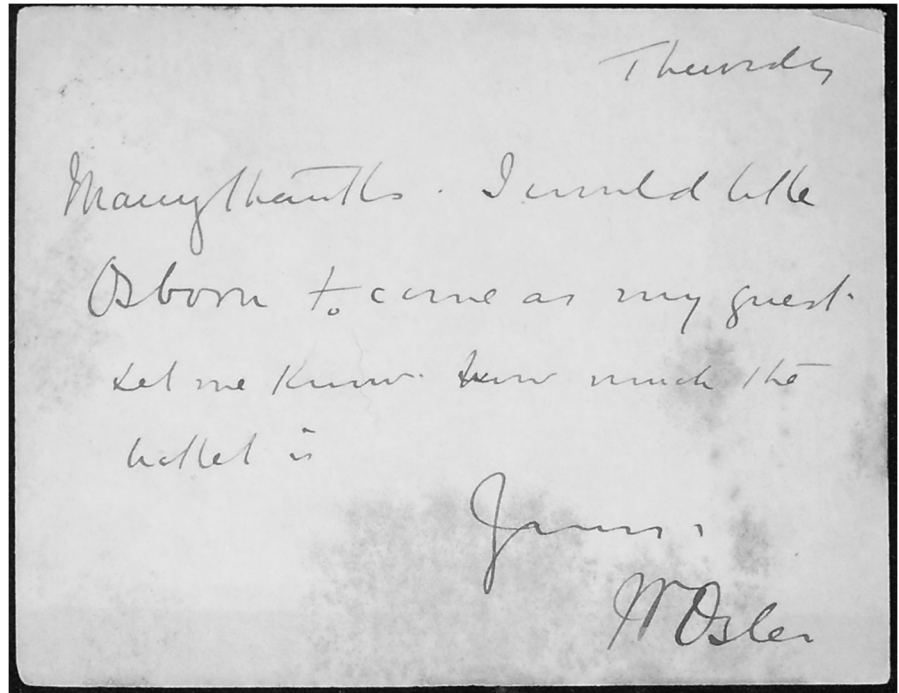 Thursday
Many thanks. I would like
Osborn to come as my guest.
Let me know how much the
ticket is
Yours,
W Osler